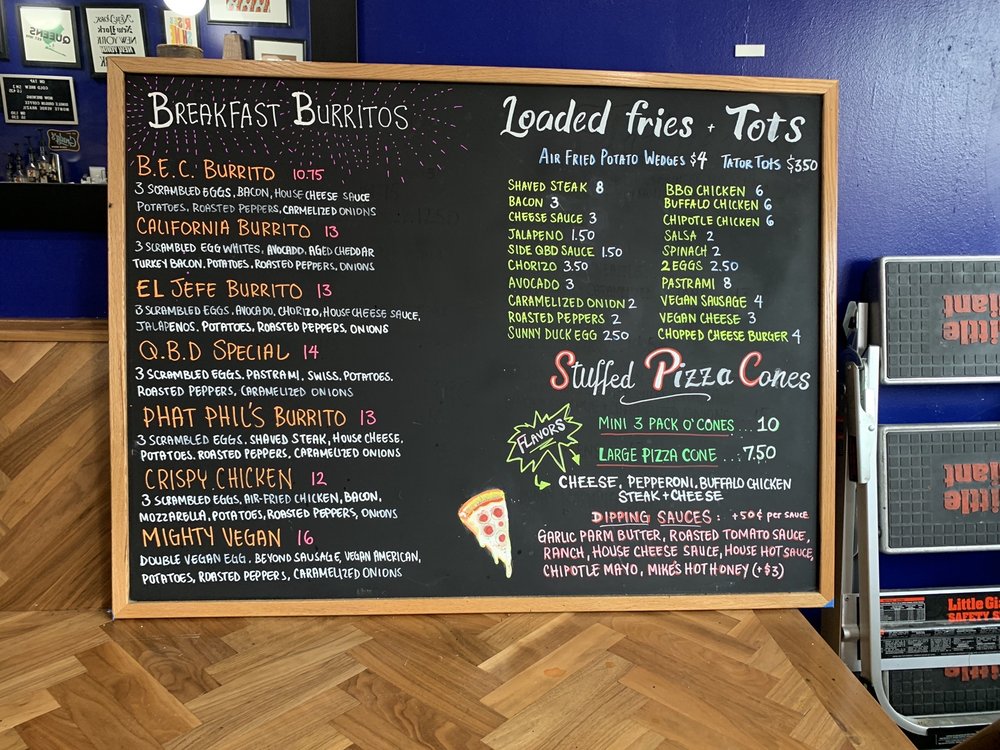 BREAKFAST BURRITOS
B.E.C. BURRITO 10.75
3 SCRAMBLED EGGS, BACON, HOUSE CHEESE SAUCE
POTATOES, ROASTED PEPPERS, CARMELIZED ONIONS
CALIFORNIA BURRITO 13
3 SCRAMBLED EGG WHITES, AVOCADO, AGED CHEDDAR
TURKEY BACON, POTATOES, ROASTED PEPPERS, ONIONS
EL JEFE BURRITO 13
3 SCRAMBLED EGGS, AVOCADO, CHORIZO, HOUSE CHEESE SAUCE,
JALAPENOS, POTATOES, ROASTED PEPPERS, ONIONS
Q.B.D SPECIAL 14
3 SCRAMBLED EGGS, PASTRAMI, SWISS, POTATOES,
ROASTED PEPPERS, CARAMELIZED ONIONS
PHAT PHIL'S BURRITO 13
3 SCRAMBLED EGGS, SHAVED STEAK, HOUSE CHEESE,
POTATOES, ROASTED PEPPERS, CARAMELIZED ONIONS
CRISPY CHICKEN 12
3 SCRAMBLED EGGS, AIR-FRIED CHICKEN, BACON,
MOZZARELLA, POTATOES, ROASTED PEPPERS, ONIONS
MIGHTY VEGAN 16
DOUBLE VEGAN EGG, BEYOND SAUSAGE, VEGAN AMERICAN,
POTATOES, ROASTED PEPPERS, CARAMELIZED ONIONS
Loaded fries + Tots
AIR FRIED POTATO WEDGES $4 TATOR TOTS $3.50
SHAVED STEAK 8
BACON 3
CHEESE SAUCE 3
JALAPENO 1.50
SIDE QBD SAUCE 1.50
CHORIZO 3.50
AVOCADO 3
CARAMELIZED ONION 2
ROASTED PEPPERS 2
SUNNY DUCK EGG 2.50
BBQ CHICKEN 6
BUFFALO CHICKEN 6
CHIPOTLE CHICKEN 6
SALSA 2
SPINACH 2
2 EGGS 2.50
PASTRAMI 8
VEGAN SAUSAGE 4
VEGAN CHEESE 3
CHOPPED CHEESE BURGER 4
Stuffed Pizza Cones
FLAVORS
MINI 3 PACK O' CONES ... 10
LARGE PIZZA CONE ... 7.50
CHEESE, PEPPERONI, BUFFALO CHICKEN
STEAK + CHEESE
DIPPING SAUCES: +50¢ per SAUCE
GARLIC PARM BUTTER, ROASTED TOMATO SAUCE,
RANCH, HOUSE CHEESE SAUCE, HOUSE HOT SAUCE,
CHIPOTLE MAYO, MIKE'S HOT HONEY (+$3)
QUEENS
New York
NEW YORK
Little Giant
Little Giant
Little Gi
SAFETY S